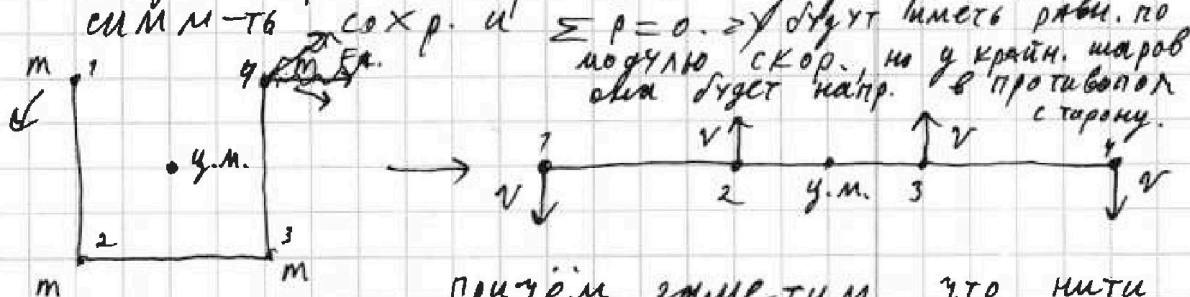 симм-ть сохр. и Σp=0. => будут иметь равн. по
модулю скор., но у крайн. шаров
она будет напр. в противопол
сторону.
m 1 4
ц.м.
2 3
m m
1 V V 4
V 2 ц.м. 3 V
причём заме-тим, что нити